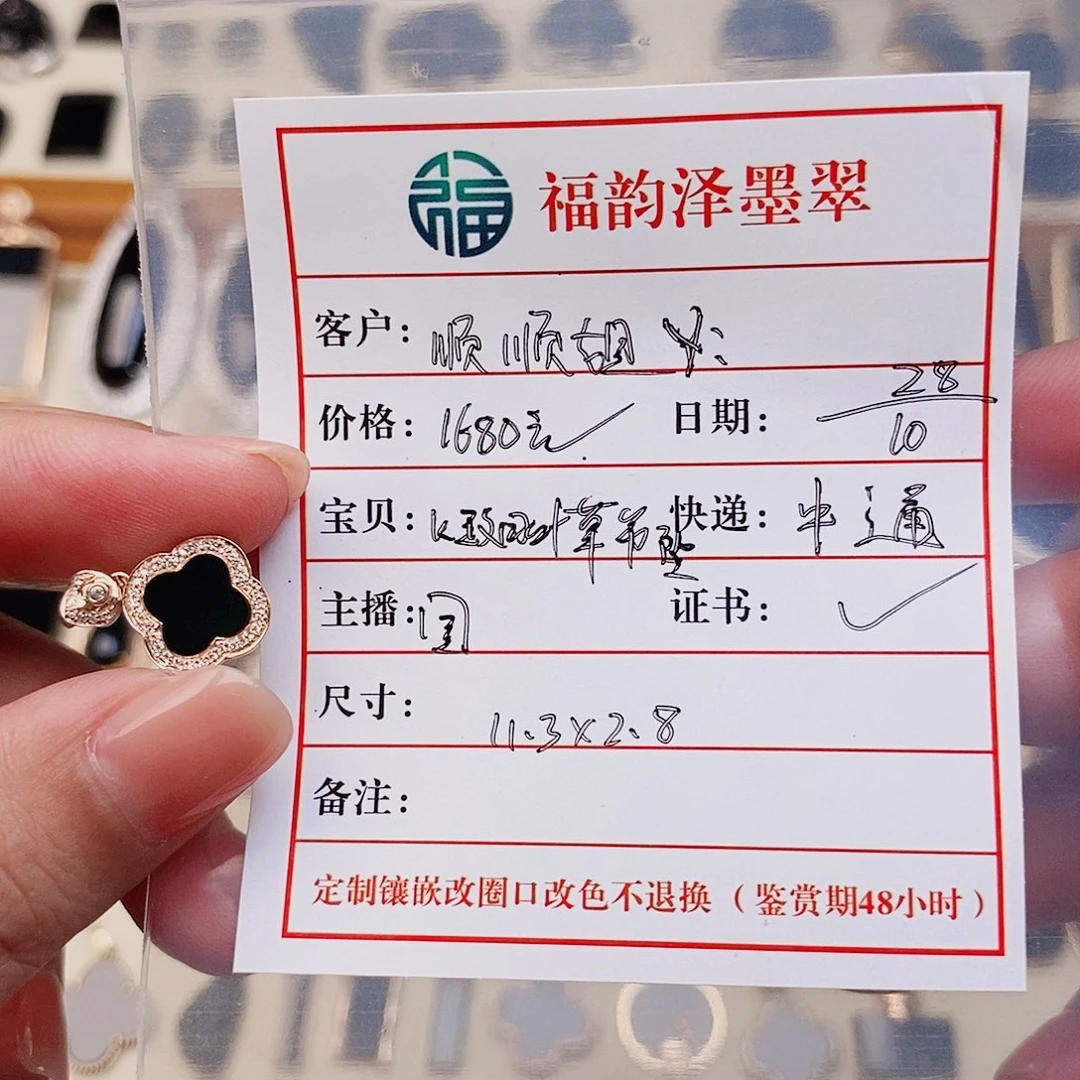 福 福韵泽墨翠
客户: 顺顺姐
价格: 1680元 日期: 28/10
宝贝: K 快递: 中通
主播: 证书: ✓
尺寸: 11.3×2.8
备注:
定制镶嵌改圈口改色不退换（鉴赏期48小时）